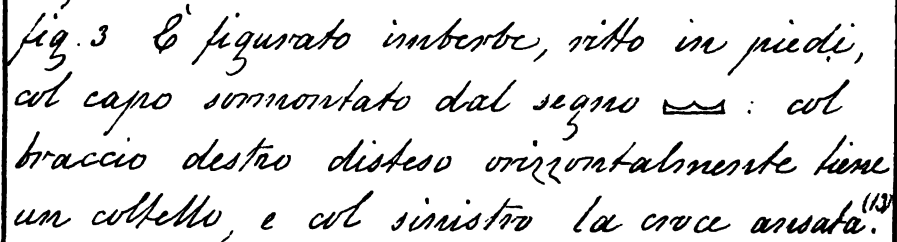 fig. 3 È figurato imberbe, ritto in piedi,
col capo sormontato dal segno 𓈋 : col
braccio destro disteso orizzontalmente tiene
un coltello, e col sinistro la croce ansata.(13)